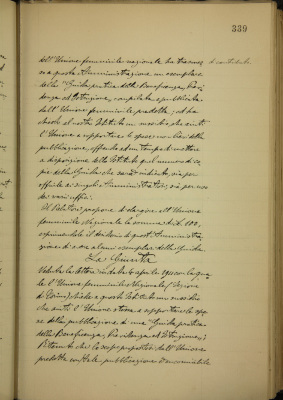 339
dell'Unione femminile nazionale ha trasmes
so a questa Amministrazione un esemplare
della "Guida pratica della Beneficenza, Previ
denza ed Istruzione, compilata e pubblicata
dall'Unione femminile predetta, ed ha
chiesto al nostro Istituto un sussidio che aiuti
l'Unione a sopportare le spese della
pubblicazione, offrendo ad un tempo di mettere
a disposizione dello Istituto quel numero di co
pie della Guida che sarà indicato, sia per
offrirle ai singoli Amministratori, sia per uso
dei varii uffici.
Il Relatore propone di elargire all'Unione
femminile Nazionale la somma di L. 100,
esprimendole il desiderio di questa Amministra
zione di avere alcuni esemplari della Guida.
La Giunta
Veduta la lettera in data aprile con la qua
le l'Unione femminile Nazionale (Sezione
di Torino) chiede a questo Istituto un sussidio
che aiuti l'Unione stessa a sopportare le spe
se della pubblicazione di una "Guida pratica
della Beneficenza, Previdenza ed Istruzione";
Ritenuto che lo scopo propostosi dall'Unione
predetta con tale pubblicazione